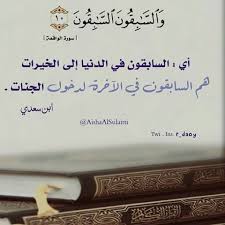 وَالسَّابِقُونَ السَّابِقُونَ ١٠
[سورة الواقعة]
أي : السابقون في الدنيا إلى الخيرات
هم السابقون في الآخرة لدخول الجنات .
ابن سعدي
@AishaAlSulami
Twi . Ins r_daoy